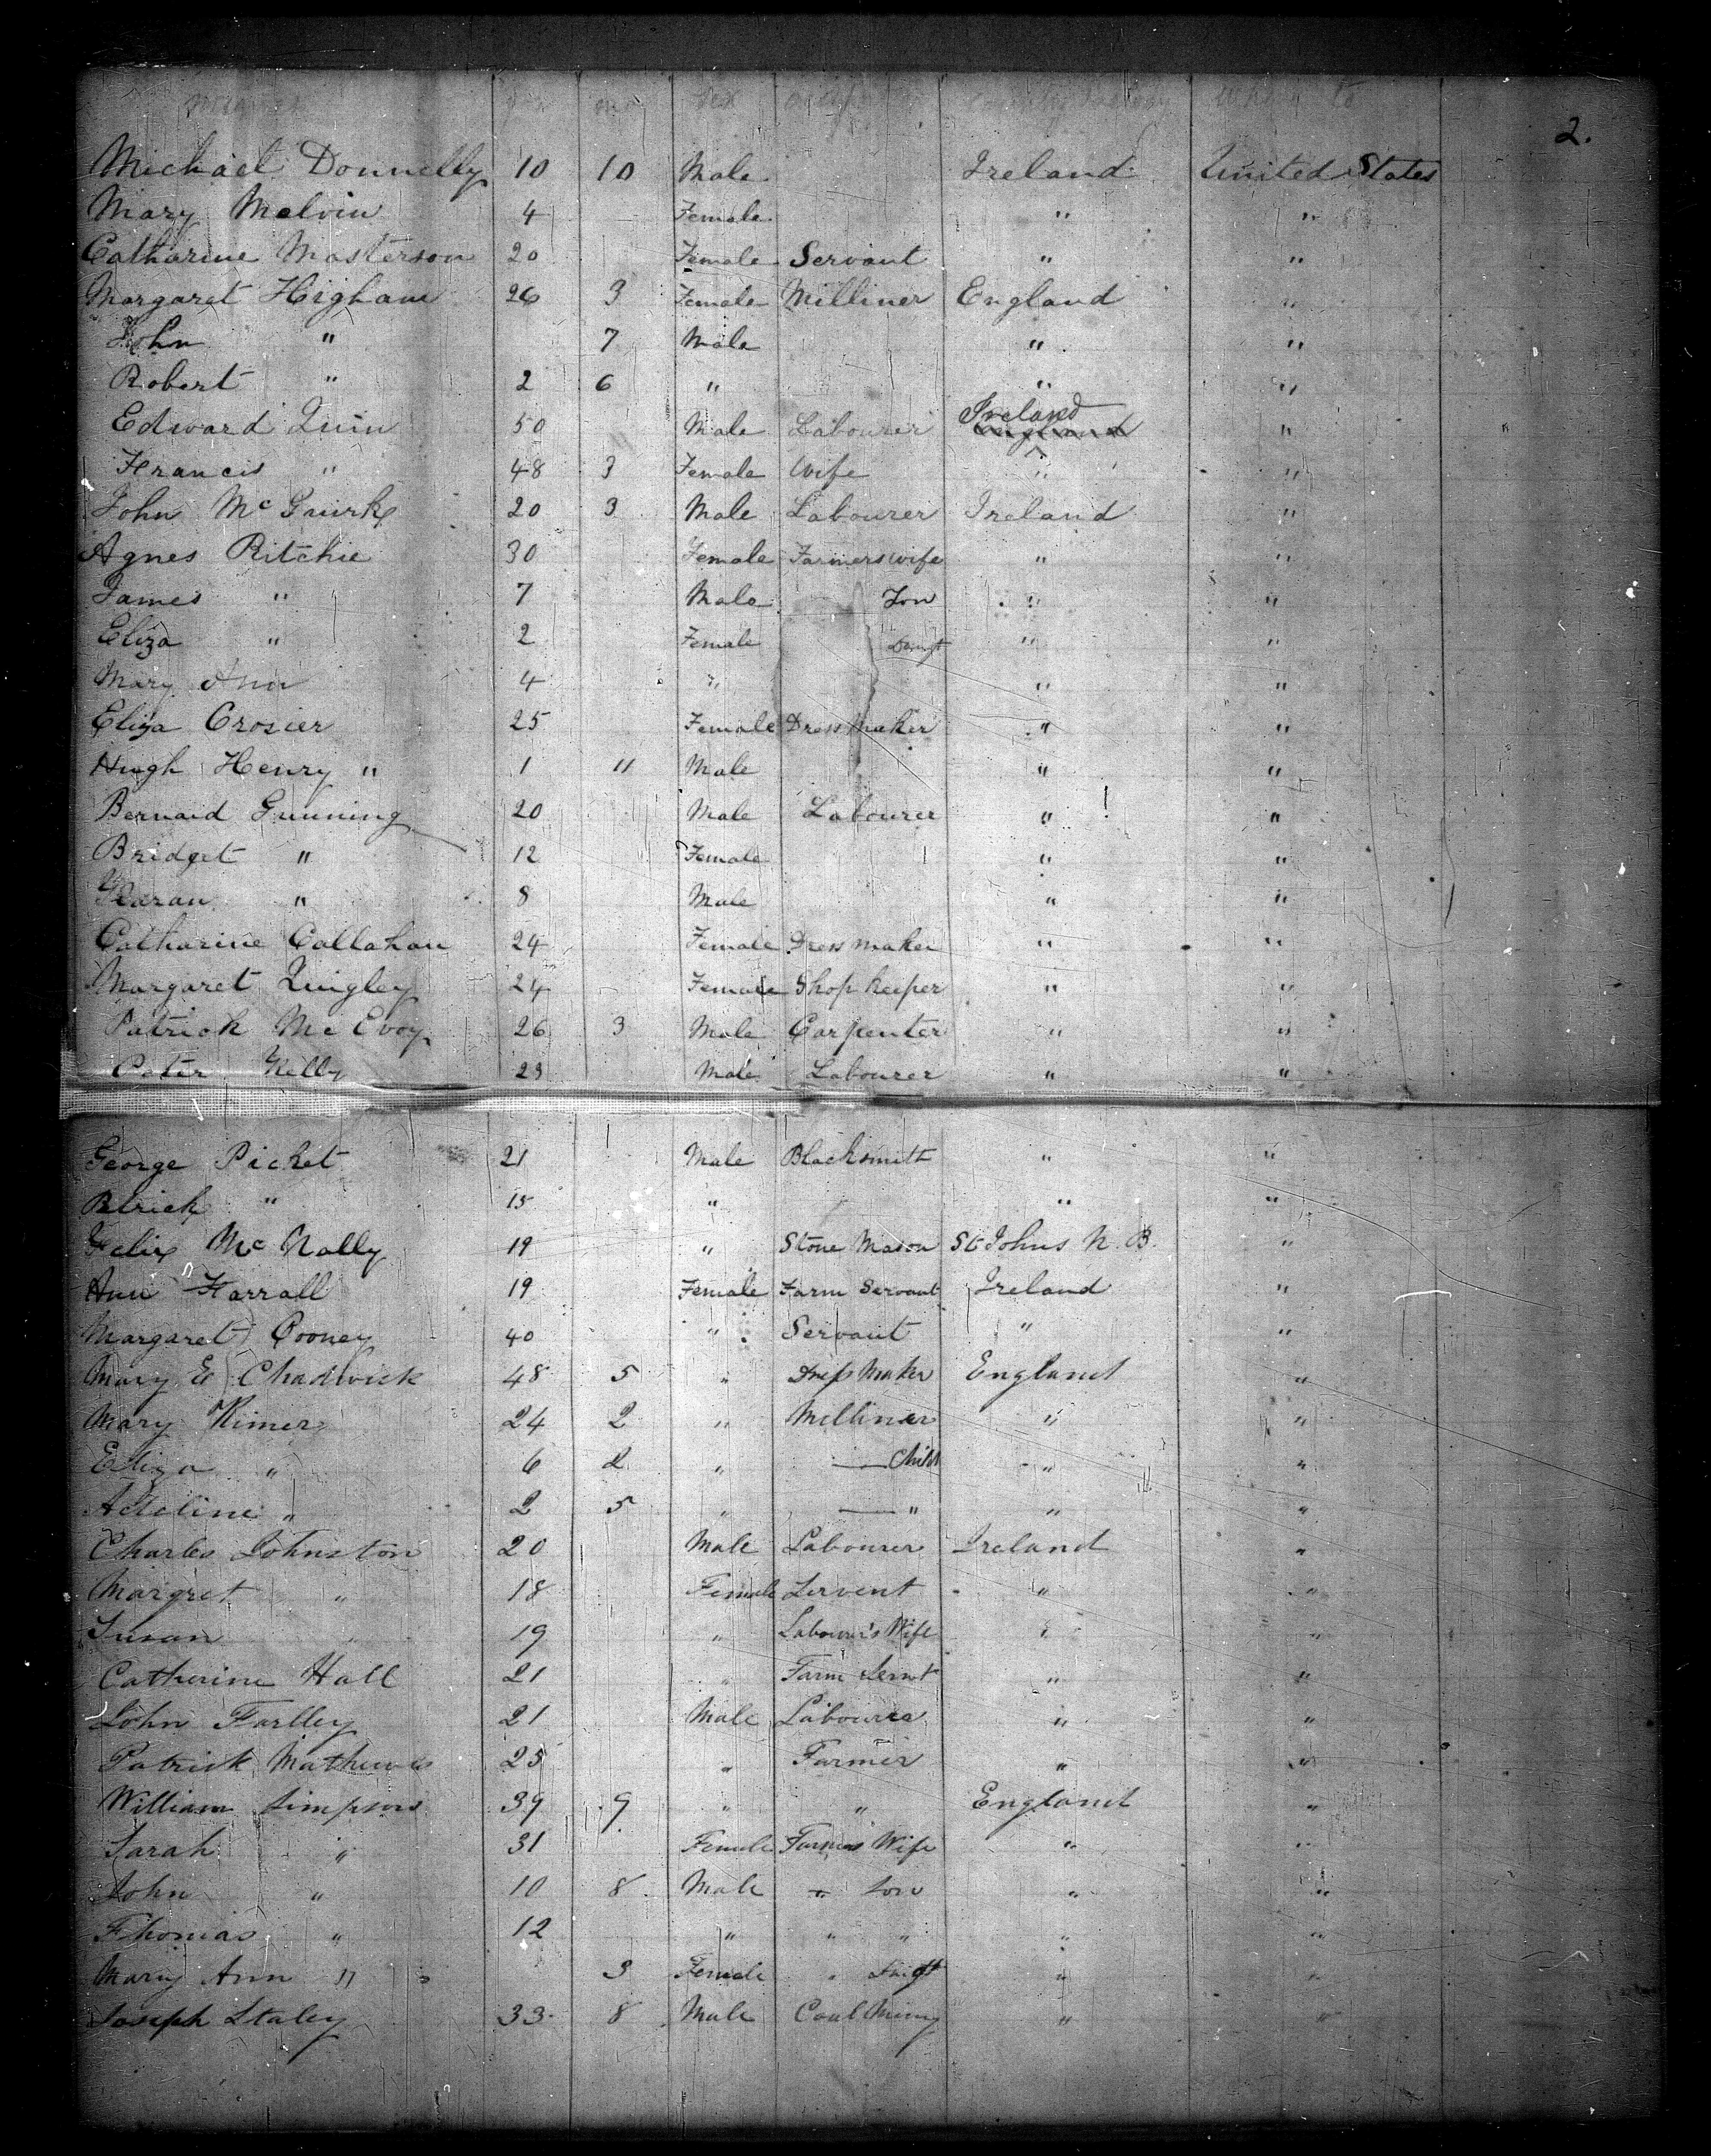 Names yrs mos Sex
2.
Michael Donnelly 10 10 Male Ireland United States
Mary Melvin 4 Female " "
Catharine Masterson 20 Female Servant " "
Margaret Higham 26 3 Female Milliner England "
John " 7 Male " "
Robert " 2 6 " " "
Edward Quin 50 Male Labourer Ireland England "
Francis " 48 3 Female Wife " "
John Mc Guirk 20 3 Male Labourer Ireland "
Agnes Ritchie 30 Female Farmers wife " "
James " 7 Male Son " "
Eliza " 2 Female Daugt " "
Mary Ann 4 " " "
Eliza Crosier 25 Female Dress Maker " "
Hugh Henry " 1 11 Male " "
Bernard Gunning 20 Male Labourer " "
Bridget " 12 Female " "
Kearan " 8 Male " "
Catharine Callahan 24 Female Dress maker " "
Margaret Quigley 24 Female Shop keeper " "
Patrick Mc Evoy 26 3 Male Carpenter " "
Peter Kelly 23 Male Labourer " "
George Picket 21 Male Blacksmith " "
" 15 " " "
Felix Mc Nally 19 " Stone Mason St Johns N. B. "
Ann Farrall 19 Female Farm Servant Ireland "
Margaret Cooney 40 " Servant " "
Mary E Chadwick 48 5 " Dress Maker England "
Mary Kimer 24 2 " Milliner " "
Eliza " 6 2 " — Child " "
Adeline " 2 5 " — " " "
Charles Johnston 20 Male Labourer Ireland "
Margret " 18 Female Servent " "
Susan " 19 " Labourer's Wife " "
Catherine Hall 21 " Farm Servt " "
John Farlley 21 Male Labourer " "
Patrick Mathews 25 " Farmer " "
William Simpson 39 9 " " England "
Sarah " 31 Female Farmers Wife " "
John " 10 8 Male " Son " "
Thomas " 12 " " " " "
Mary Ann " 3 Female " " "
Joseph Staley 33 8 Male Coal Mining " "